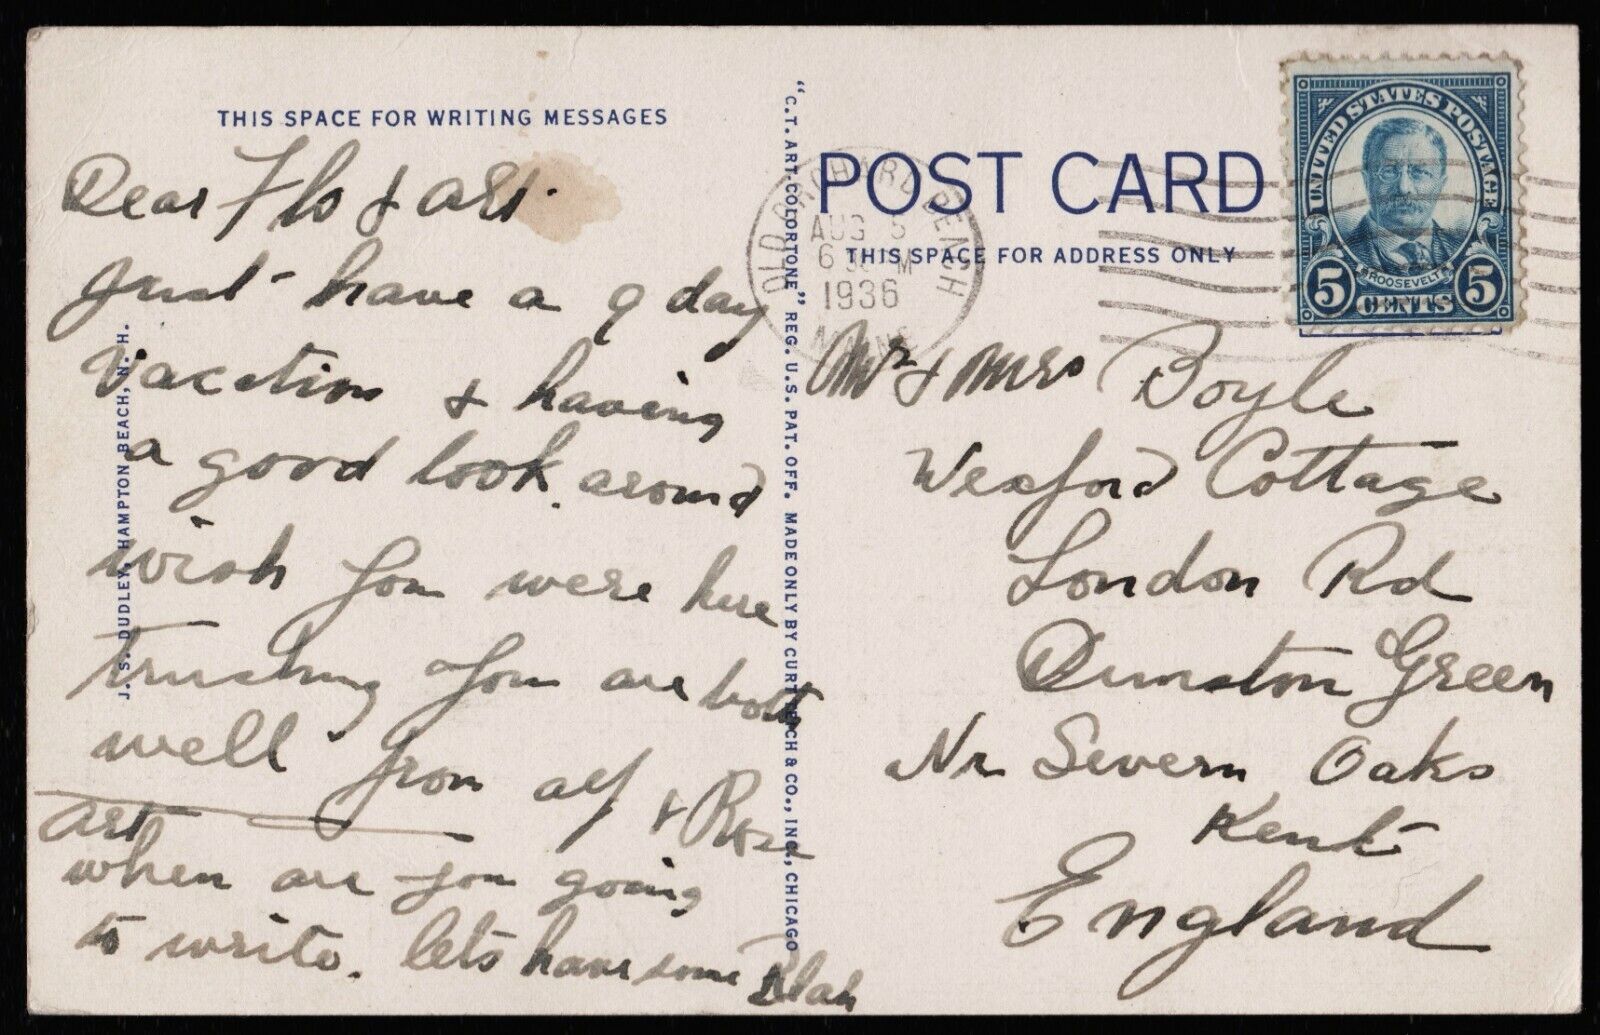 THIS SPACE FOR WRITING MESSAGES
Dear Flo & Art.
Just have a 9 day
Vacation & having
a good look around
wish you were here
trusting you are both
well from alf & Rose
Art
when are you going
to write. lets have some Blah
J. S. DUDLEY, HAMPTON BEACH, N. H.
"C. T. ART-COLORTONE" REG. U. S. PAT. OFF. MADE ONLY BY CURT TEICH & CO., INC., CHICAGO
OLD ORCHARD BEACH
AUG 5
6 M
1936
MAINE
POST CARD
THIS SPACE FOR ADDRESS ONLY
UNITED STATES POSTAGE
ROOSEVELT
5 CENTS 5
Mr & Mrs Boyle
Wexford Cottage
London Rd
Dunston Green
Nr Severn Oaks
Kent
England